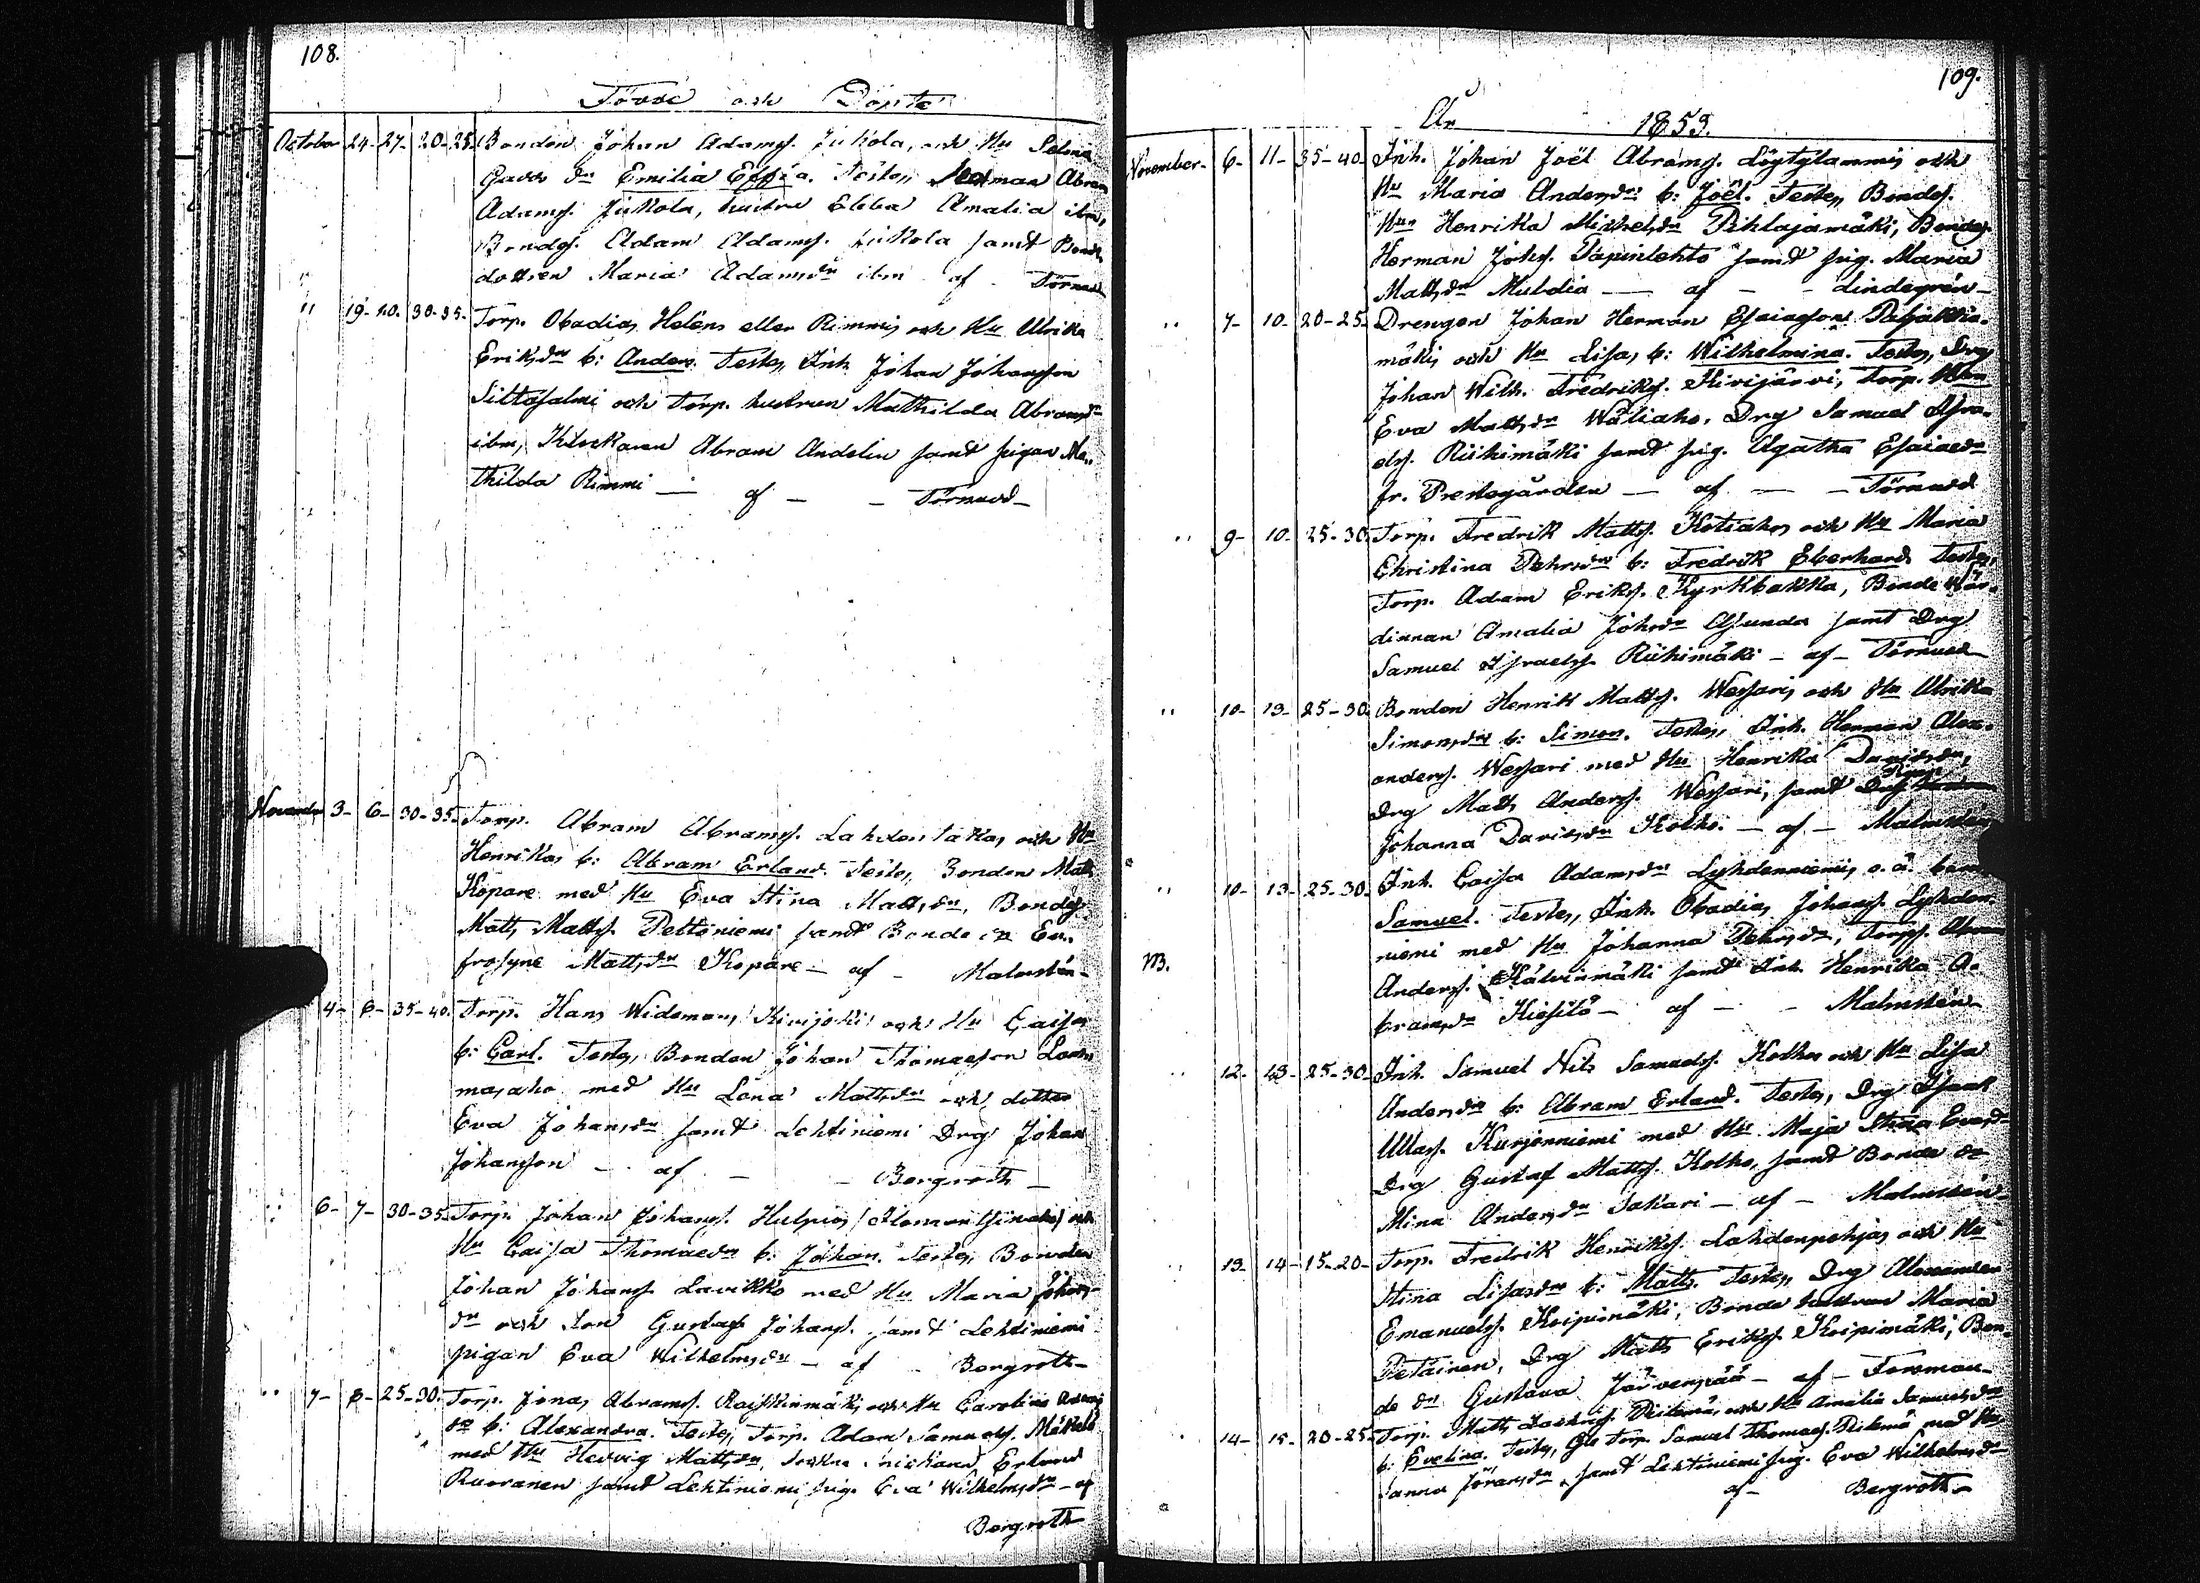 108.
Födde och Döpte
October 24- 27- 20-25. Bonden Johan Adamss. Jukola, och Hu Selina
Gavs dr Emilia Effia. Testes, Abram
Adamss. Jukola, hustru Ebba Amalia ibm,
Bondes. Adam Adamss. Jukola samt Bonde
dottren Maria Adamsdr ibm af Törnudd
" 19- 20. 30-35. Torp. Obadias Helens eller Rimmis och Hu Ulrika
Eriksdr b: Anders. Testes, Inh. Johan Johansson
Siltasalmi och Torp. hustrun Mathilda Abramsdr
ibm, Klockaren Abram Andelin samt pigan Ma-
thilda Rimmi — af — — Törnudd —
November 3- 6- 30-35. Torp. Abram Abramss. Lahdentakas och Hu
Henrikas b: Abram Erland. Testes, Bonden Matts
Kopare med Hu Eva Stina Mattsdr, Bondes.
Matts Mattss. Peltoniemi samt Bonde dr Eu-
frosyne Mattsdr Kopare — af — Malmstén —
4- 6- 35-40. Torp. Hans Widemans Kivijoki och Hu Caisas
b: Carl. Testes, Bonden Johan Thomasson
masaho med Hu Lena Mattsdr och dotter
Eva Johansdr samt Lehtiniemi Drg Johan
Johansson — af — — Bergroth —
" 6- 7- 30-35. Torp. Johan Johanss. Hulpios och
Hu Caisa Thomasdr b: Johan. Testes, Bonden
Johan Johanss. Lavikko med Hu Maria Johans-
dr och Son Gustaf Johanss. samt Lehtiniemi
pigan Eva Wilhelmsdr — af — Bergroth —
" 7- 8- 25-30. Torp. Jonas Abramss. Raiskinmäkis och Hu Carolina Adams
dr b: Alexandra. Testes, Torp. Adam Samuelss. Mäkelä
med Hu Hedvig Mattsdr, Erland
Ruoranen samt Lehtiniemi pig. Eva Wilhelmsdr — af
Bergroth
109.
År 1859.
November- 6- 11- 35-40. Inh. Johan Joël Abramss. Löytylammis och
Hu Maria Andersdr b: Joël. Testes, Bondes.
Hu Henrika Michelsdr Pihlajamäki, Bondes.
Herman Johss. Tapinlehto samt pig. Maria
Mattsdr — af — Lindegrén —
" 7- 10- 20-25. Drengen Johan Herman Esaiasson
mäkis och Hu Lisas b: Wilhelmina. Testes, Drg
Johan Wilh. Fredrikss. Kivijärvi, Torp. Hu
Eva Mattsdr Wäliaho, Drg Samuel Isra-
elss. Riihimäki samt pig. Agatha Esaiædr
fr. Prestegården — af — — Törnudd
" 9- 10- 25-30. Torp. Fredrik Mattss. Kotiahos och Hu Maria
Christina Pehrsdr b: Fredrik Eberhard. Testes,
Torp. Adam Erikss. Kyrkbakka, Bonde Wär-
dinnan Amalia Johsdr Asunda samt Drg
Samuel Israelss. Riihimäki — af — Törnudd
" 10- 13- 25-30. Bonden Henrik Mattss. Wessaris och Hu Ulrika
Simonsdr b: Simon. Testes, Inh. Herman Alex-
anderss. Wessari med Hu Henrika Davidsdr,
Drg Matts Anderss. Wessari, samt
Johanna Davidsdr Kolho. — af — Malmstén
" 10- 13- 25-30. Inh. Caisa Adamsdr Lyhdenniemis o. ä. barn
Samuel. Testes, Inh. Obadias Johanss. Lyhden-
niemi med Hu Johanna Pehrsdr, Torps. Abram
M. Anderss. Kälvinmäki samt Inh. Henrika A-
bramsdr — af — — Malmstén —
" 12- 13- 25-30. Inh. Samuel Nils Samuelss. Kolhos och Hu Lisa
Andersdr b: Abram Erland. Testes, Drg Isaak
Ullass. Kurjenniemi med Hu Maja Stina Evasdr
Drg Gustaf Mattss. Kolho, samt Bonde dr
Mina Andersdr Sakari — af — Malmstén
" 13- 14- 15-20- Torp. Fredrik Henrikss. Lahdenpohjas och Hu
Stina Lisasdr b: Matts. Testes, Drg Alexander
Emanuelss. Koipimäki, Bonde hustrun Maria
Petäinen, Drg Matts Erikss. Koipimäki, Bon-
de dr Gustava Järvenpää — af — Forsman —
14- 15- 20-25. Torp. Matts Zachriss. Pislamäs och Hu Amalia Samuelsdr
b: Evelina. Testes, Gle Torp. Samuel Thomass. med Hu
Sanna Göransdr samt Lehtiniemi pig. Eva Wilhelmsdr
af — Bergroth —